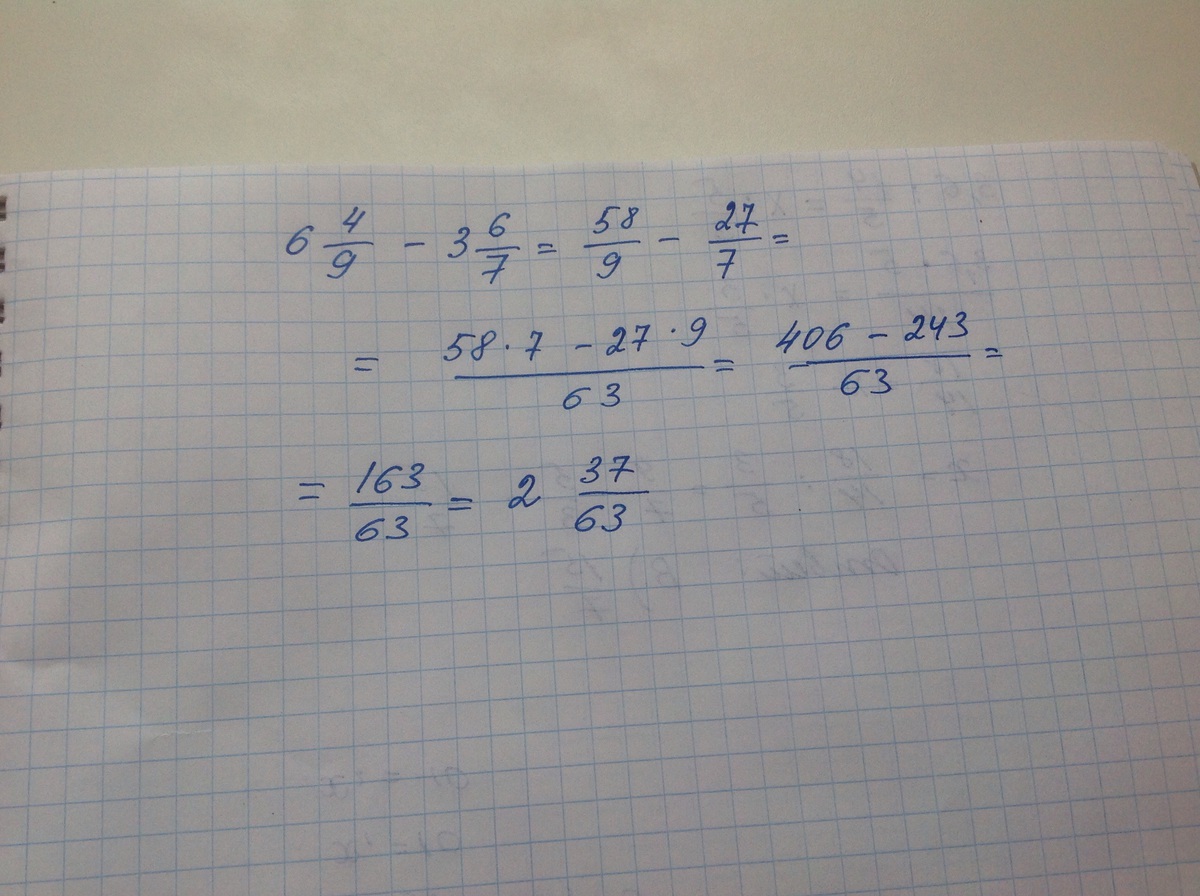 6 4/9 - 3 6/7 = 58/9 - 27/7 =
= (58 · 7 - 27 · 9)/63 = (406 - 243)/63 =
= 163/63 = 2 37/63